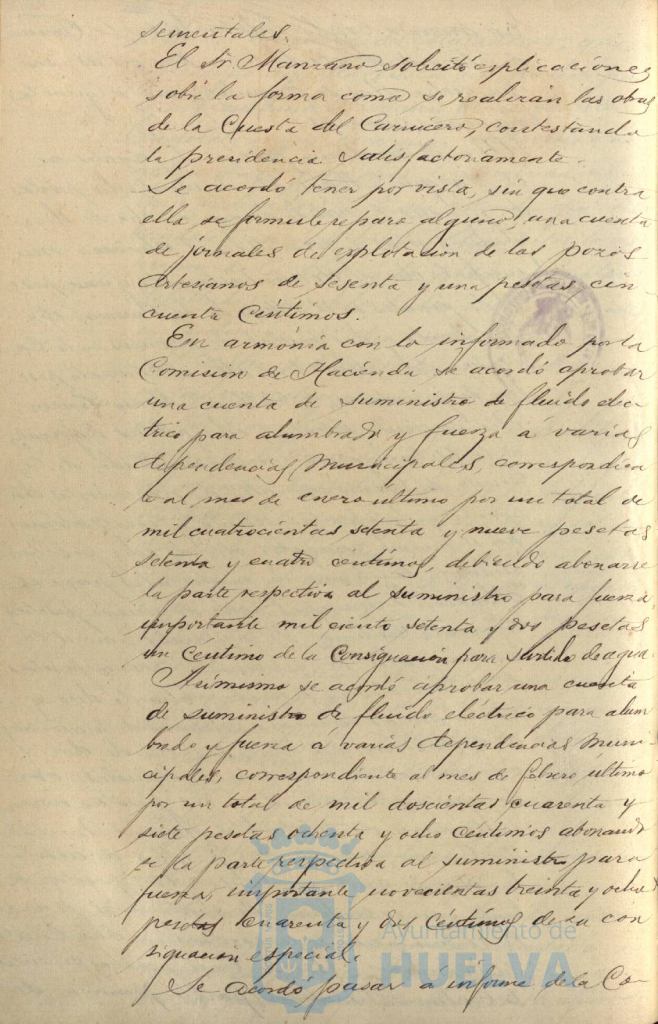 sementales.
El Sr. Manzano solicitó esplicaciones
sobre la forma como se realizan las obras
de la Cuesta del Carnicero, contestando
la presidencia satisfactoriamente.
Se acordó tener por vista, sin que contra
ella se formule reparo alguno, una cuenta
de jornales de explotacion de los pozos
artesianos de sesenta y una pesetas, cin
cuenta céntimos.
En armonia con lo informado por la
Comision de Hacienda se acordó aprobar
una cuenta de suministro de fluido elec
trico para alumbrado y fuerza á varias
dependencias Municipales, correspondien
te al mes de enero ultimo por un total de
mil cuatrocientas setenta y nueve pesetas
setenta y cuatro centimos, debiendo abonarse
la parte respectiva al suministro para fuerza
importante mil ciento setenta y dos pesetas
un céntimo de la consignacion para surtido de agua.
Asimismo se acordó aprobar una cuenta
de suministro de fluido eléctrico para alum
brado y fuerza á varias dependencias Muni-
cipales, correspondiente al mes de febrero último
por un total de mil doscientas cuarenta y
siete pesetas ochenta y ocho céntimos abonando
se la parte respectiva al suministro para
fuerza, importante novecientas treinta y ocho
pesetas cuarenta y dos céntimos de su con
signacion especial.
Se acordó pasar á informe de la Co-
Ayuntamiento de
HUELVA